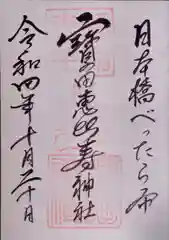 日本橋べったら市
寳田恵比寿神社
令和四年十月二十日